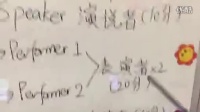 Speaker 演说者(10分)
Performer 1
表演者×2
(20分)
Performer 2